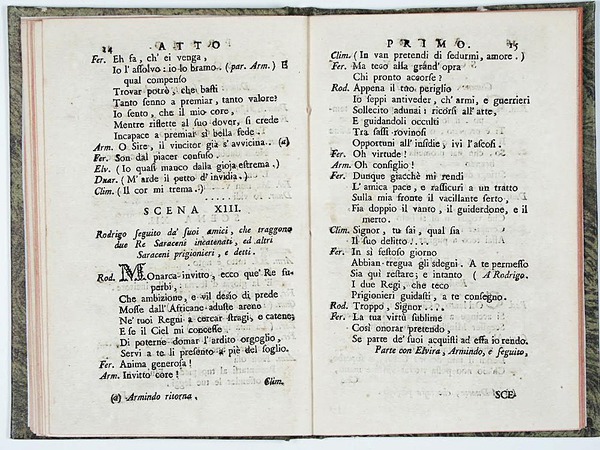 14 ATTO
Fer. Eh fa, ch' ei venga,
Io l' assolvo: io lo bramo.. (par. Arm.) E
qual compenso
Trovar potrò, che basti
Tanto senno a premiar, tanto valore?
Io sento, che il mio core,
Mentre riflette al suo dover, si crede
Incapace a premiar sì bella fede.
Arm. O Sire, il vincitor già s' avvicina.. (a)
Fer. Son dal piacer confuso.
Elv. (Io quasi manco dalla gioja estrema.)
Duar. (M' arde il petto d' invidia.)
Clim. (Il cor mi trema.)
SCENA XIII.
Rodrigo seguito da' suoi amici, che traggono
due Re Saraceni incatenati, ed altri
Saraceni prigionieri, e detti.
Rod. Monarca invitto, ecco que' Re su-
perbi,
Che ambizione, e vil desio di prede
Mosse dall' Africane aduste arene
Ne' tuoi Regni a cercar stragi, e catene;
E se il Ciel mi concesse
Di poterne domar l' ardito orgoglio,
Servi a te li presento a piè del soglio.
Fer. Anima generosa!
Arm. Invitto core!
Clim.
(a) Armindo ritorna.
PRIMO. 15
Clim. (In van pretendi di sedurmi, amore.)
Fer. Ma teco alla grand' opra
Chi pronto accorse?
Rod. Appena il tuo periglio
Io seppi antiveder, ch' armi, e guerrieri
Sollecito adunai; ricorsi all' arte,
E guidandoli occulti
Tra sassi rovinosi
Opportuni all' insidie, ivi l' ascosi.
Fer. Oh virtude!
Arm. Oh consiglio!
Fer. Dunque giacchè mi rendi
L' amica pace, e rassicuri a un tratto
Sulla mia fronte il vacillante serto,
Fia doppio il vanto, il guiderdone, e il
merto.
Clim. Signor, tu sai, qual sia
Il suo delitto....
Fer. In sì festoso giorno
Abbian tregua gli sdegni. A te permesso
Sia qui restare; e intanto ( A Rodrigo.
I due Regi, che teco
Prigionieri guidasti, a te consegno.
Rod. Troppo, Signor....
Fer. La tua virtù sublime
Così onorar pretendo,
Se parte de' suoi acquisti ad essa io rendo.
Parte con Elvira, Armindo, e seguito,
SCE-